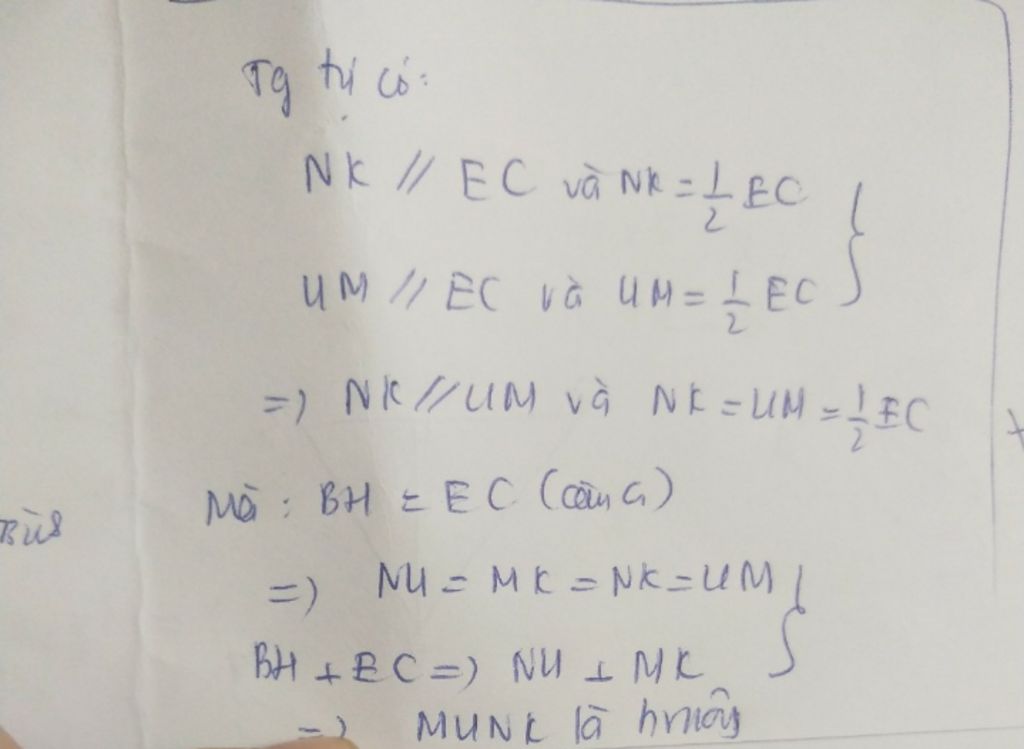 Tg tự có:
NK // EC và NK = 1/2 EC
UM // EC và UM = 1/2 EC
=) NK // UM và NK = UM = 1/2 EC
Mà : BH = EC (câu a)
=) NU = MK = NK = UM
BH ⊥ EC =) NU ⊥ MK
=) MUNK là hvuông